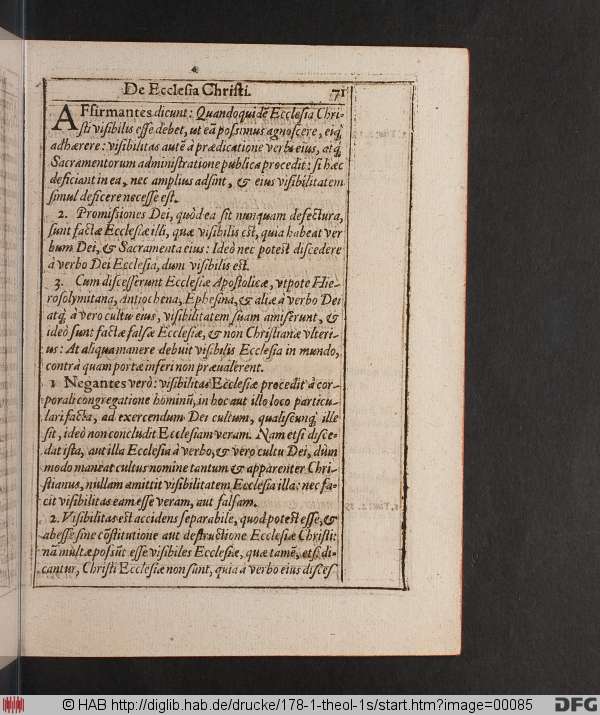 De Ecclesia Christi. 71
AFfirmantes dicunt: Quandoquidẽ Ecclesia Chri-
sti visibilis esse debet, ut eã possimus agnoscere, eiq́;
adhærere: visibilitas autẽ à prædicatione verbi eius, atq́;
Sacramentorum administratione publica procedit: si hæc
deficiant in ea, nec amplius adsint, & eius visibilitatem
simul deficere necesse est.
2. Promissiones Dei, quòd ea sit nunquam defectura,
sunt factæ Ecclesiæ illi, quæ visibilis est, quia habeat ver
bum Dei, & Sacramenta eius: Ideò nec potest discedere
à verbo Dei Ecclesia, dum visibilis est.
3. Cum discesserunt Ecclesiæ Apostolicæ, utpote Hie-
rosolymitana, Antiochena, Ephesina, & aliæ à verbo Dei
atq́; à vero cultu eius, visibilitatem suam amiserunt, &
ideò sunt factæ falsæ Ecclesiæ, & non Christianæ vlteri-
us: At aliqua manere debuit visibilis Ecclesia in mundo,
contra quam portæ inferi non præualerent.
1 Negantes verò: visibilitas Ecclesiæ procedit à cor-
porali congregatione hominũ, in hoc aut illo loco particu-
lari facta, ad exercendum Dei cultum, qualiscunq́; ille
sit, ideò non concludit Ecclesiam veram. Nam etsi disce-
dat ista, aut illa Ecclesia à verbo, & vero cultu Dei, dũm
modo maneat cultus nomine tantum & apparenter Chri-
stianus, nullam amittit visibilitatem Ecclesia illa: nec fa-
cit visibilitas eam esse veram, aut falsam.
2. Visibilitas est accidens separabile, quod potest esse, &
abesse sine cõstitutione aut destructione Ecclesiæ Christi:
nã multæ possũt esse visibiles Ecclesiæ, quæ tamẽ, etsi di-
cantur, Christi Ecclesiæ non sunt, quia à verbo eius disces
© HAB http://diglib.hab.de/drucke/178-1-theol-1s/start.htm?image=00085
DFG